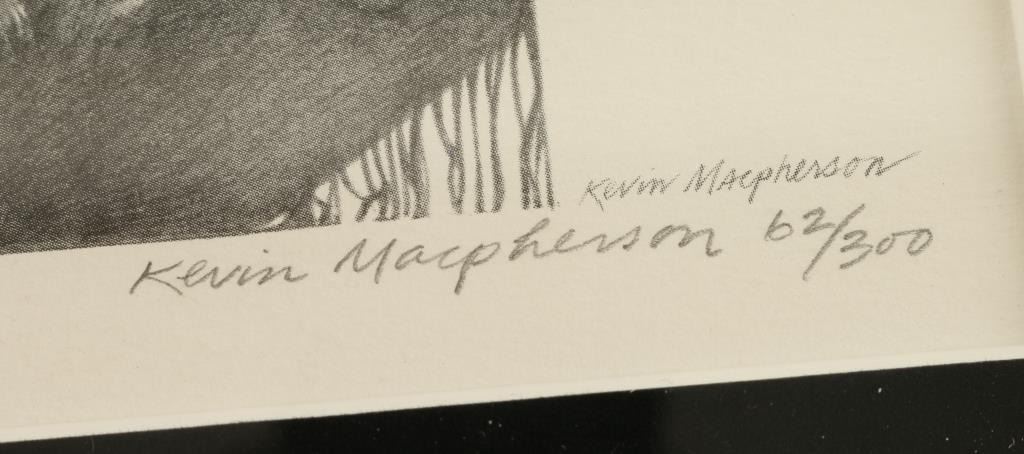 Kevin Macpherson
Kevin Macpherson 62/300